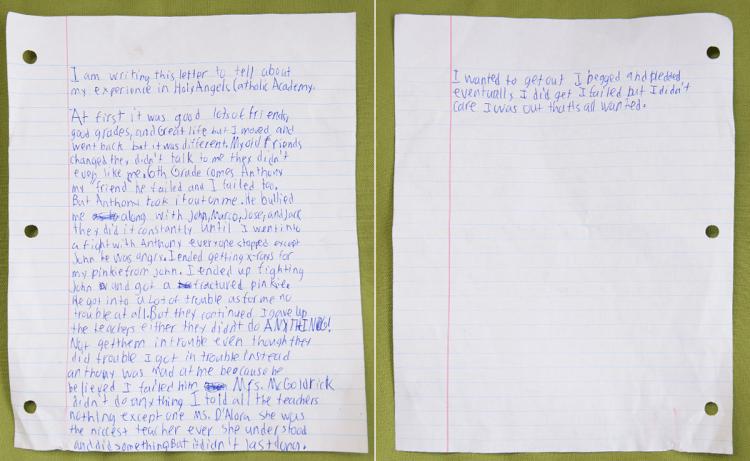 I am writing this letter to tell about
my experience in Holy Angels Catholic Academy.
At first it was good lots of friends,
good grades, and Great life but I moved and
went back but it was different. My old friends
changed they didn't talk to me they didn't
even like me. 6th Grade comes Anthony
my "friend" he failed and I failed too.
But Anthony took it out on me. He bullied
me along with John, Marco, Jose, and Jack
they did it constantly until I went into
a fight with Anthony everyone stopped except
John he was angry. I ended getting x-rays for
my pinkie from John. I ended up fighting
John and got a fractured pinkie.
He got into a Lot of trouble as for me no
trouble at all. But they continued I gave up
the teachers either they didn't do ANYTHING!
Not get them in trouble even though they
did trouble I got in trouble instead
anthony was mad at me because he
believed I failed him Mrs. McGoldrick
didn't do anything I told all the teachers
nothing except one Ms. D'Alora she was
the nicest teacher ever she understood
and did something But it didn't last long.
I wanted to get out I begged and pleded
eventually I did get I failed but I didn't
care I was out that's all wanted.